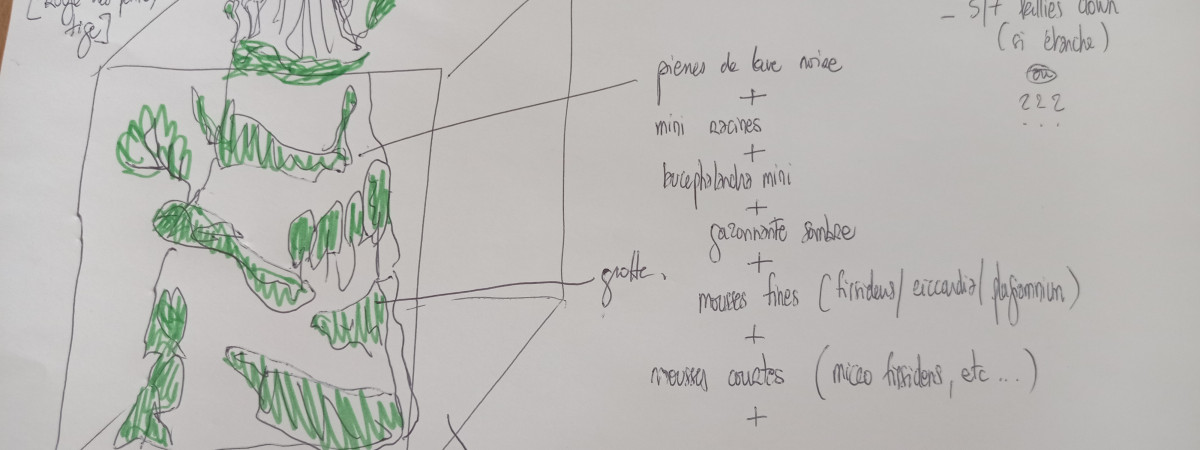 tige]
(si étanche)
ou
? ? ?
...
pierres de lave noire
+
mini racines
+
bucephalandra mini
+
gazonnante sombre
+
grotte.
mousses fines (fissidens/riccardia/plagiomnium)
+
mousses courtes (micro fissidens, etc...)
+